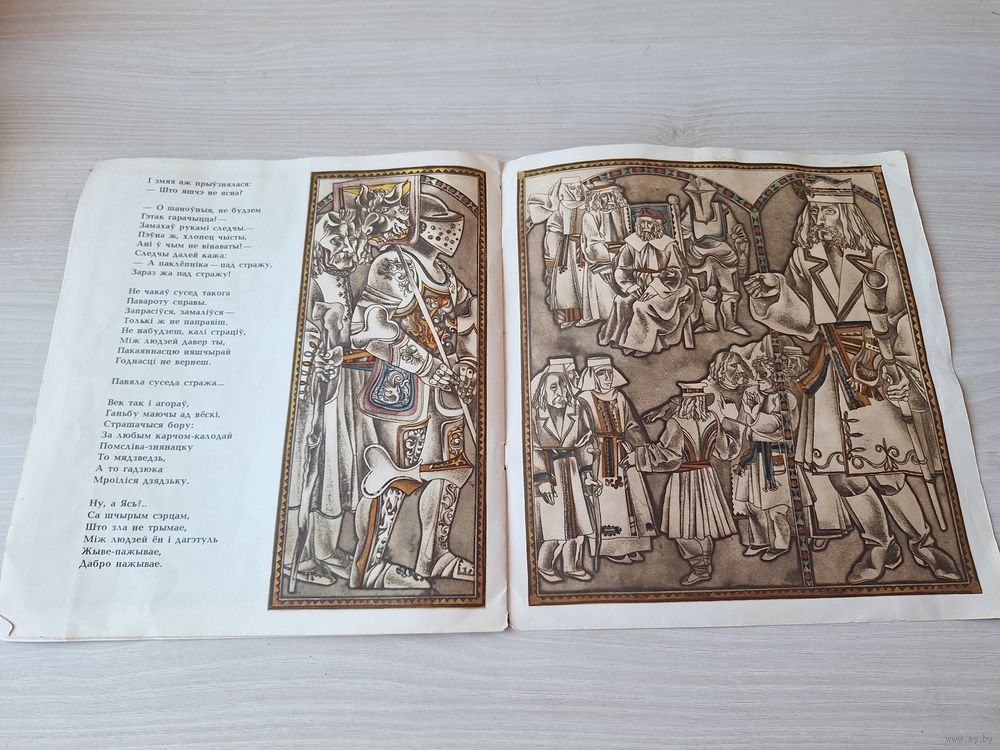 І змяя аж прыўзнялася:
— Што яшчэ не ясна?
— О шаноўныя, не будзем
Гэтак гарачыцца! —
Замахаў рукамі следчы. —
Пэўна ж, хлопец чысты,
Ані ў чым не вінаваты! —
Следчы далей кажа:
— А паклёпніка — пад стражу,
Зараз жа пад стражу!
Не чакаў сусед такога
Павароту справы.
Запрасіўся, замаліўся —
Толькі ж не паправіш,
Не набудзеш, калі страціў,
Між людзей давер ты,
Пакаяннасцю няшчырай
Годнасці не вернеш.
Павяла суседа стража...
Век так і агораў,
Ганьбу маючы ад вёскі,
Страшачыся бору:
За любым карчом-калодай
Помсліва-знянацку
То мядзведзь,
А то гадзюка
Мроіліся дзядзьку.
Ну, а Ясь?..
Са шчырым сэрцам,
Што зла не трымае,
Між людзей ён і дагэтуль
Жыве-пажывае,
Дабро нажывае.
www.ay.by